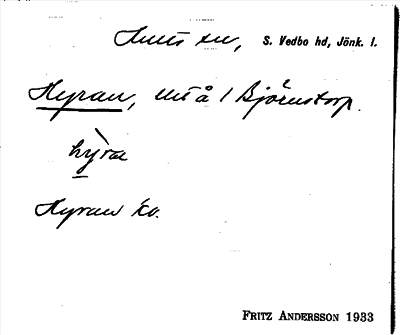 Hults sn, S. Vedbo hd, Jönk. l.
Hyran, uts å 1 Björnstorp.
hỳra
Hyran ko.
FRITZ ANDERSSON 1933